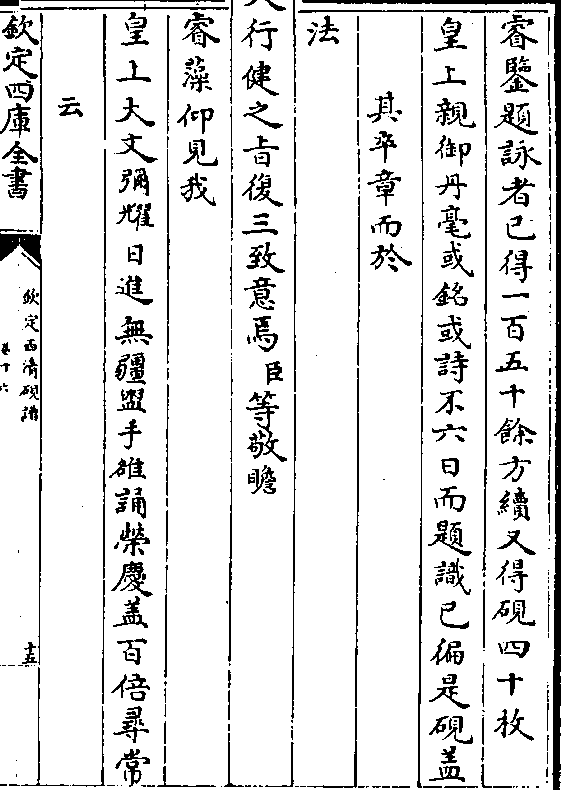 睿鑒題詠者已得一百五十餘方續又得硯四十枚
皇上親御丹毫或銘或詩不六日而題識已徧是硯蓋
其卒章而於
法
行健之㫖復三致意焉臣等敬瞻
睿藻仰見我
皇上大文彌耀日進無疆盥手雒誦榮慶蓋百倍尋常
云
欽定四庫全書
欽定西清硯譜
卷十六
十五